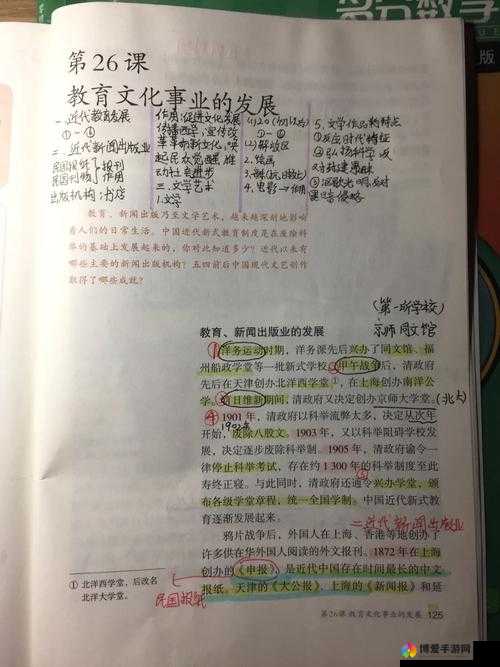 第26课
教育文化事业的发展
一、近代教育发展
①-④
二、近代新闻出版业
出版机构：书店
作用：促进文化发展
传播西学，宣传改
动社会进步
三、文学艺术
1.文学
①-④
(2)解放区
2.绘画
4.电影→作用
5.文学作品的特点
①反应时代特征
教育、新闻出版乃至文学艺术，越来越深刻地影响
着人们的日常生活。中国近代新式教育制度是在废除科
举的基础上发展起来的，你对此知道多少？近代以来有
哪些主要的新闻出版机构？五四前后中国现代文艺创作
取得了哪些成就？
(第一所学校)
京师同文馆
教育、新闻出版业的发展
①洋务运动时期，洋务派先后兴办了同文馆、福
州船政学堂等一批新式学校。②甲午战争后，清政府
先后在天津创办北洋西学堂①，在上海创办南洋公
学。③百日维新期间，清政府又决定创办京师大学堂。(北大)
④1901年，清政府以科举流弊太多，决定从次年
1902年
开始，废除八股文。1903年，又以科举阻碍学校发
展，决定逐步废除科举制。1905年，清政府谕令一
律停止科举考试，存在约1 300年的科举制度至此
寿终正寝。与此同时，清政府还通令兴办学堂，颁
布各级学堂章程，统一全国学制。中国近代新式教
育逐渐发展起来。
二、近代新闻出版业
鸦片战争后，外国人在上海、香港等地创办了
许多供在华外国人阅读的外文报刊。1872年在上海
创办的《申报》，是近代中国存在时间最长的中文
报纸。天津的《大公报》、上海的《新闻报》和延
民国报纸
① 北洋西学堂，后改名
北洋大学堂。
第26课 教育文化事业的发展 125
博爱手游网